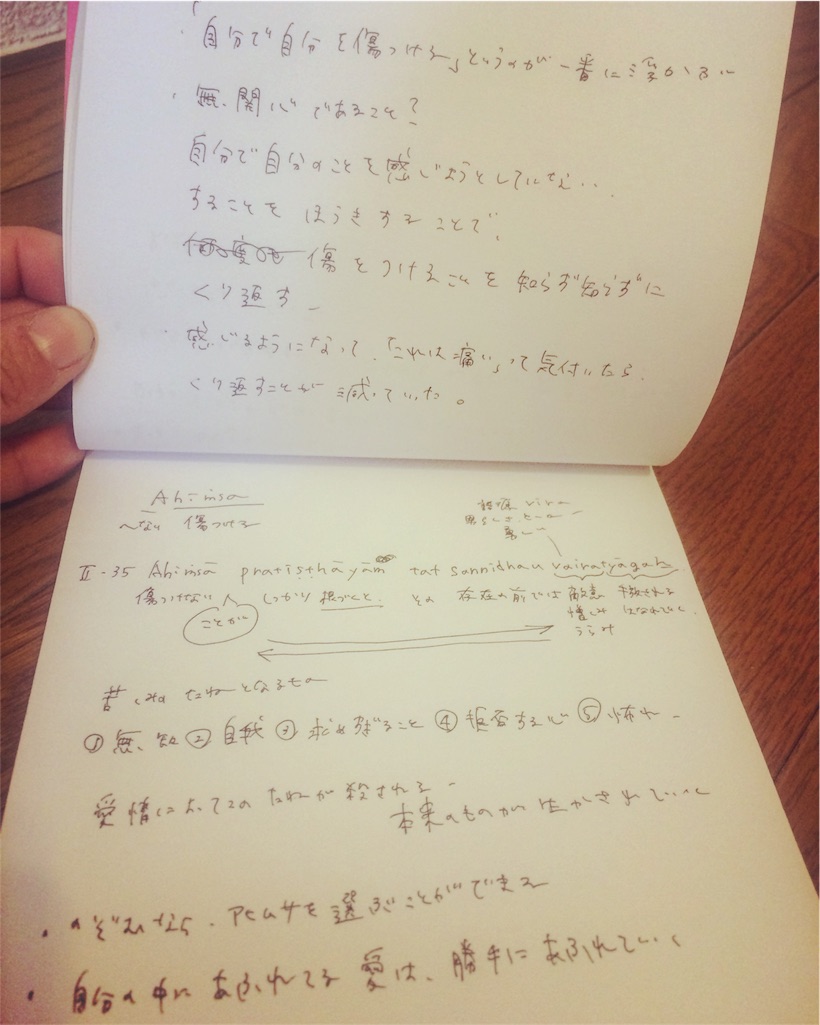 ・「自分で自分を傷つける」というのが一番に浮かぶ
・無関心であること？
自分で自分のことを感じようとしていない・・
することをほうきすることで、
傷をつけることを知らず知らずに
くり返す
・感じるようになって、「これは痛い」って気付いたら、
くり返すことが減っていった。
Ahiṁsa
〜ない 傷つける
語源 vira
勇
II-35 Ahiṁsā pratiṣṭhāyāṁ tat sannidhau vairatyāgaḥ
傷つけない しっかり根づくと その存在の前では 敵意 手放される
ことが 憎しみ はなれていく
うらみ
苦しみのたねとなるもの
①無知 ②自我 ③求めすぎること ④拒否する心 ⑤怖れ
愛情によってこのたねが殺される
本来のものが生かされていく
・のぞむなら、アヒムサを選ぶことができる
・自分の中にあふれてる愛は、勝手にあふれていく